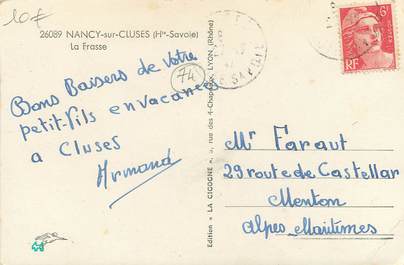 10€
26089 NANCY-sur-CLUSES (Hte-Savoie)
La Frasse
Bons Baisers de Votre
petit-fils en vacances
a Cluses
Armand
74
Edition « LA CICOGNE », rue des 4-Chapeaux, LYON, (Rhône)
6F
POSTES
RF
Mr Faraut
29 route de Castellar
Menton
Alpes Maritimes